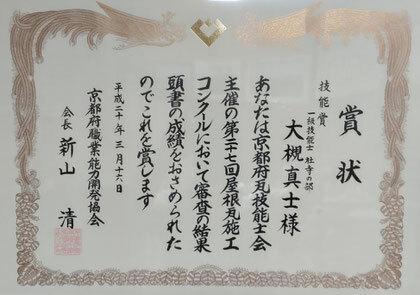 賞状
技能賞
一級技能士 社寺の部
大槻真士様
あなたは京都府瓦技能士会
主催の第二十七屋根瓦施工
コンクールにおいて審査の結果
頭書の成績をおさめられた
のでこれを賞します
平成二十年三月十六日
京都府職業能力開発協会
会長 新山 清